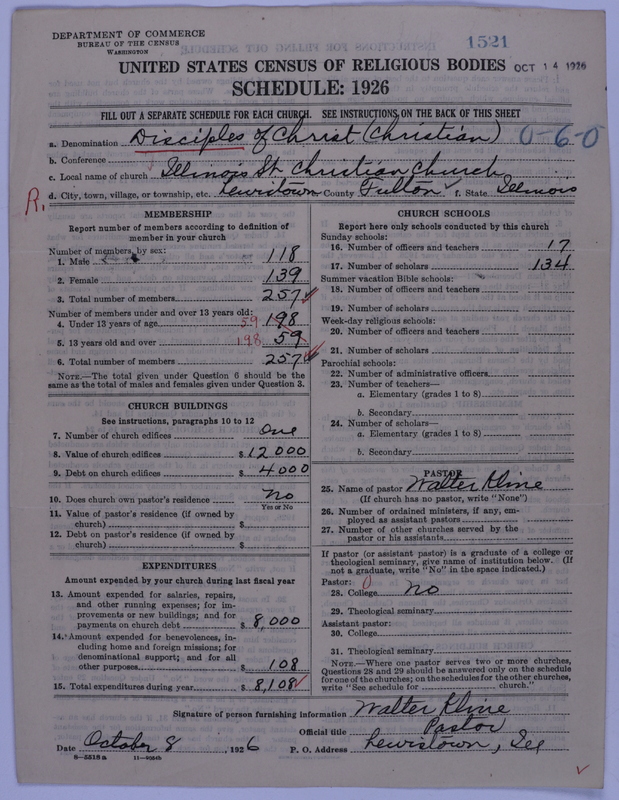 DEPARTMENT OF COMMERCE
BUREAU OF THE CENSUS
WASHINGTON
1521
UNITED STATES CENSUS OF RELIGIOUS BODIES
OCT 14 1926
SCHEDULE: 1926
FILL OUT A SEPARATE SCHEDULE FOR EACH CHURCH. SEE INSTRUCTIONS ON THE BACK OF THIS SHEET
a. Denomination Disciples of Christ (Christian) 0-6-0
b. Conference
c. Local name of church Illinois St. Christian Church
R. d. City, town, village, or township, etc. Lewistown County Fulton f. State Illinois
MEMBERSHIP
Report number of members according to definition of member in your church
Number of members, by sex:
1. Male 118
2. Female 139
3. Total number of members 257
Number of members under and over 13 years old:
4. Under 13 years of age 59 198
5. 13 years old and over 198 59
6. Total number of members 257
NOTE.—The total given under Question 6 should be the same as the total of males and females given under Question 3.
CHURCH BUILDINGS
See instructions, paragraphs 10 to 12
7. Number of church edifices One
8. Value of church edifices $12000
9. Debt on church edifices $4000
10. Does church own pastor's residence No
Yes or No
11. Value of pastor's residence (if owned by church) $
12. Debt on pastor's residence (if owned by church) $
EXPENDITURES
Amount expended by your church during last fiscal year
13. Amount expended for salaries, repairs, and other running expenses; for improvements or new buildings; and for payments on church debt $8,000
14. Amount expended for benevolences, including home and foreign missions; for denominational support; and for all other purposes $108
15. Total expenditures during year $8,108
CHURCH SCHOOLS
Report here only schools conducted by this church
Sunday schools:
16. Number of officers and teachers 17
17. Number of scholars 134
Summer vacation Bible schools:
18. Number of officers and teachers
19. Number of scholars
Week-day religious schools:
20. Number of officers and teachers
21. Number of scholars
Parochial schools:
22. Number of administrative officers
23. Number of teachers—
a. Elementary (grades 1 to 8)
b. Secondary
24. Number of scholars—
a. Elementary (grades 1 to 8)
b. Secondary
PASTOR
25. Name of pastor Walter Kline
(If church has no pastor, write "None")
26. Number of ordained ministers, if any, employed as assistant pastors
27. Number of other churches served by the pastor or his assistants
If pastor (or assistant pastor) is a graduate of a college or theological seminary, give name of institution below. (If not a graduate, write "No" in the space indicated.)
Pastor: 0
28. College No
29. Theological seminary
Assistant pastor:
30. College
31. Theological seminary
NOTE.—Where one pastor serves two or more churches, Questions 28 and 29 should be answered only on the schedule for one of the churches; on the schedules for the other churches, write "See schedule for church."
Signature of person furnishing information Walter Kline
Official title Pastor
Date October 8, 1926 P. O. Address Lewistown, Ill